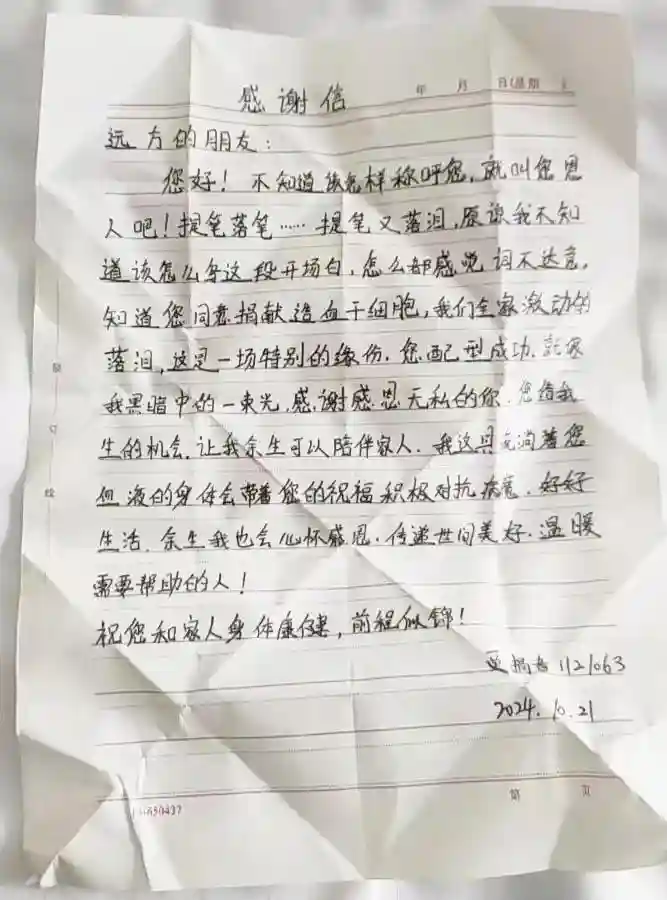 感谢信
年 月 日(星期 )
远方的朋友:
您好!不知道该怎样称呼您,就叫您恩
人吧!提笔落笔……提笔又落泪,原谅我不知
道该怎么写这段开场白,怎么都感觉词不达意,
知道您同意捐献造血干细胞,我们全家激动的
落泪,这是一场特别的缘份.您配型成功.就像
我黑暗中的一束光,感谢感恩无私的你.您给我
生的机会.让我余生可以陪伴家人.我这具流淌着您
血液的身体会带着您的祝福积极对抗病魔.好好
生活.余生我也会心怀感恩.传递世间美好.温暖
需要帮助的人!
祝您和家人身体康健,前程似锦!
受捐者1121063
2024.10.21
第 页